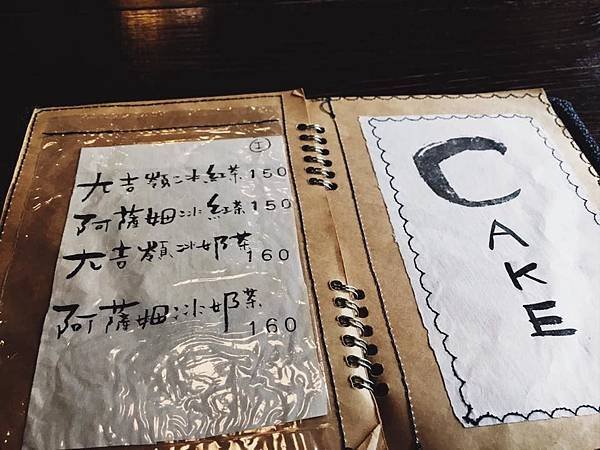 I
大吉嶺冰紅茶 150
阿薩姆冰紅茶 150
大吉嶺冰奶茶 160
阿薩姆冰奶茶 160
CAKE